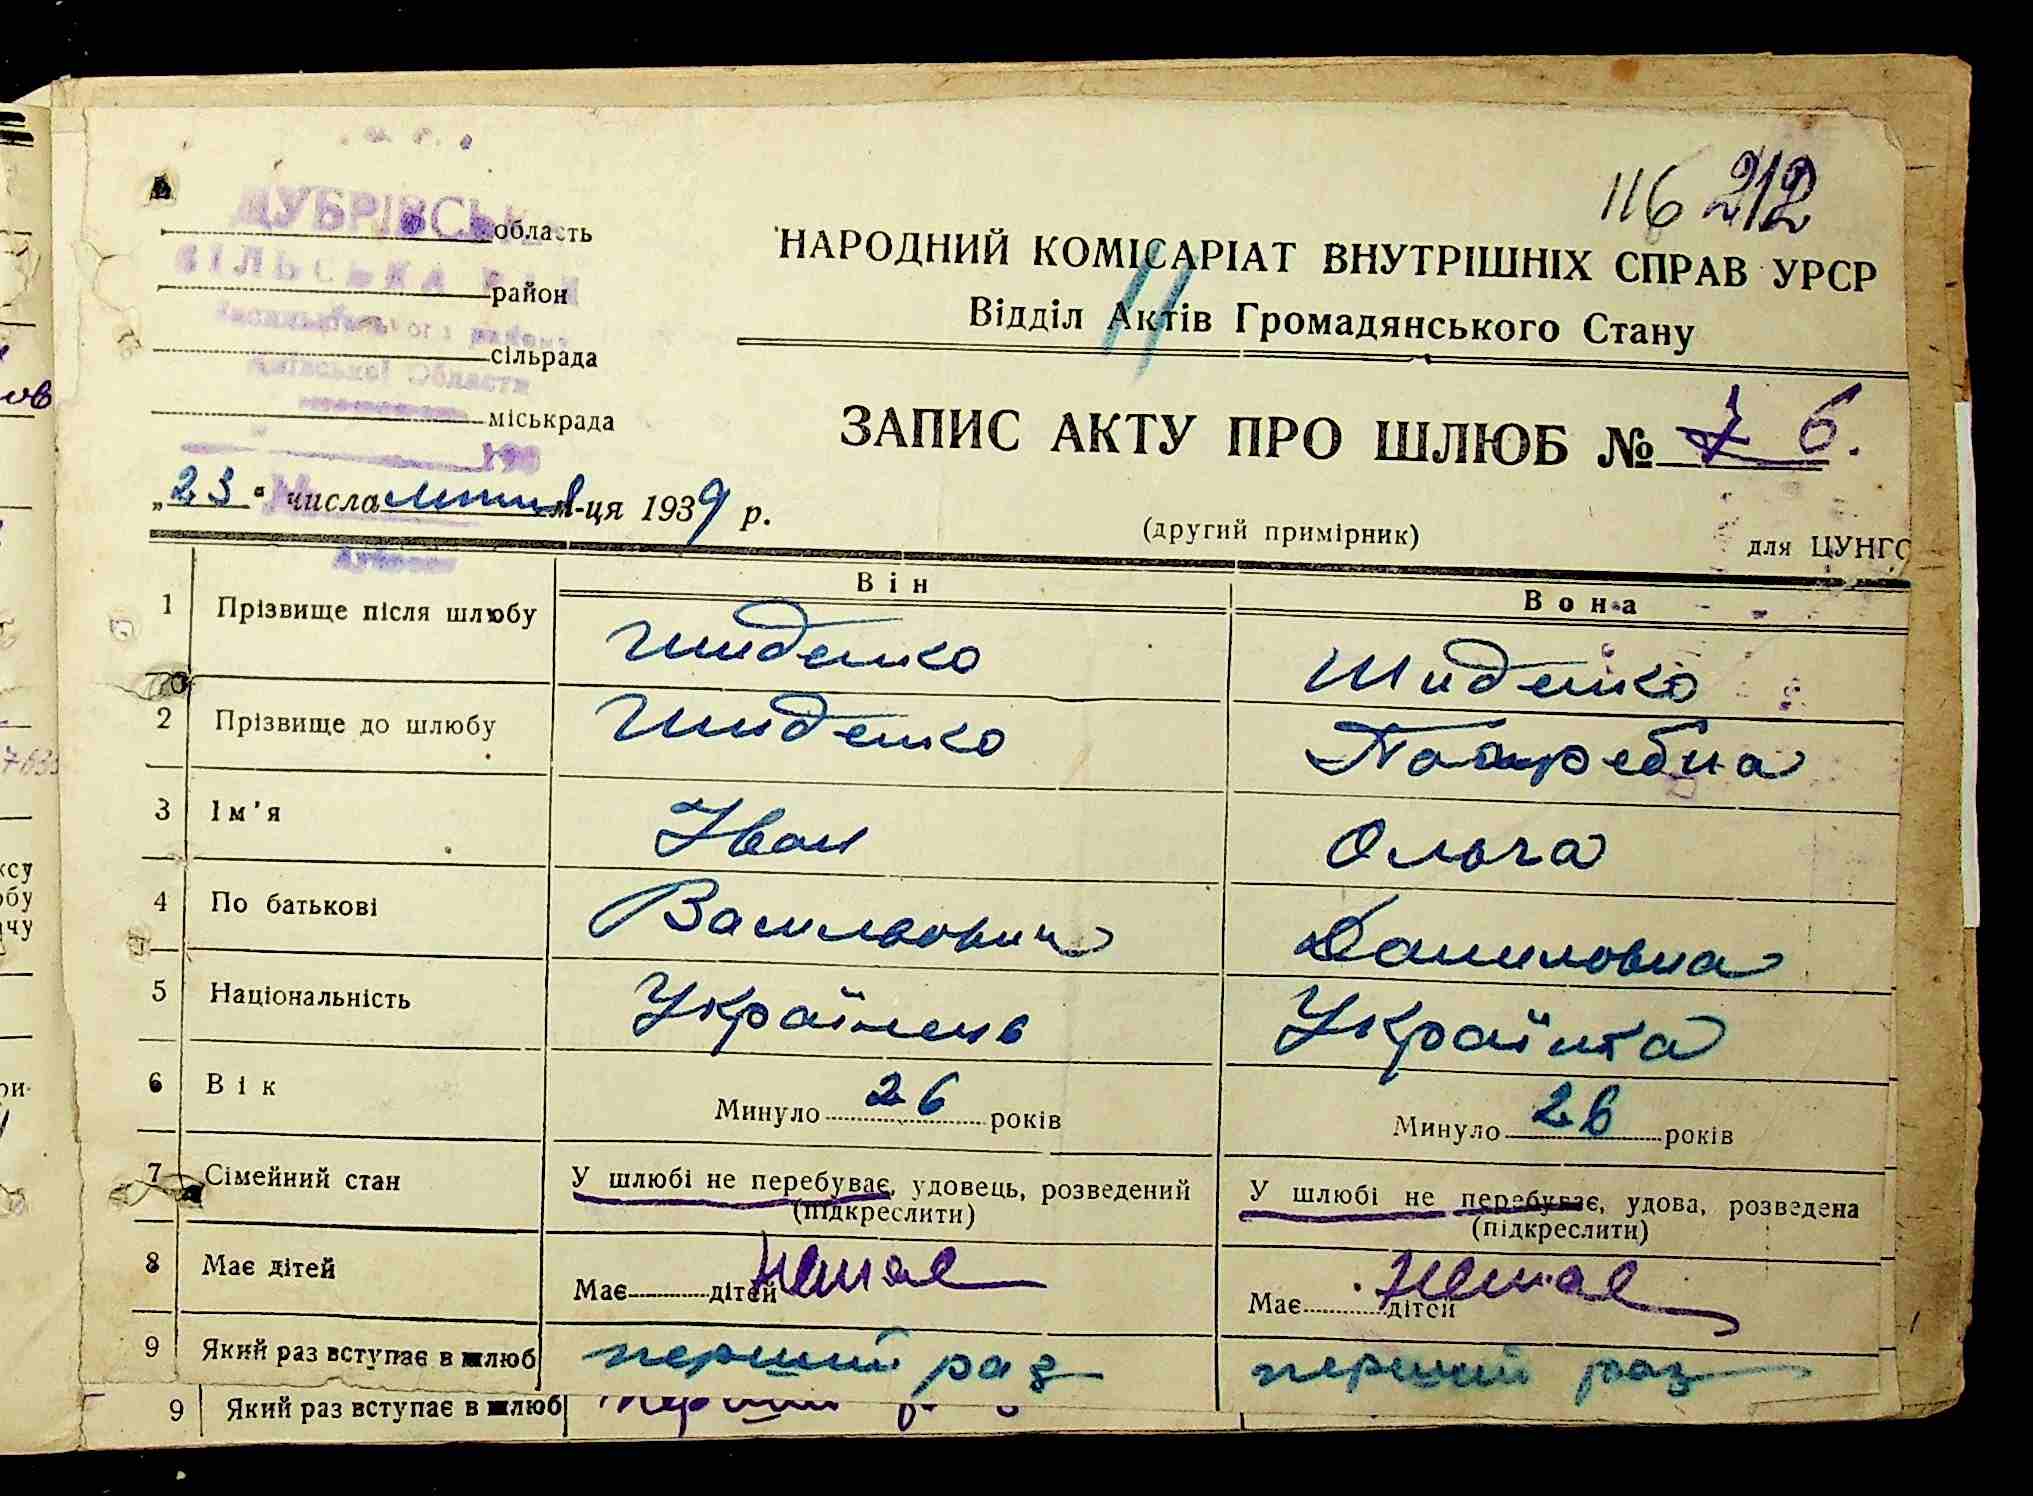 116 212
ДУБРІВСЬКА
область
СІЛЬСЬКА РАДА
район
району
сільрада
Київської Области
міськрада
193
НАРОДНИЙ КОМІСАРІАТ ВНУТРІШНІХ СПРАВ УРСР
Відділ Актів Громадянського Стану
11
ЗАПИС АКТУ ПРО ШЛЮБ № 7 6.
„23“ числа лютня м-ця 1939 р.
(другий примірник)
для ЦУНГО
Він
Вона
1 Прізвище після шлюбу Шиденко Шиденко
2 Прізвище до шлюбу Шиденко Патребна
3 Ім'я Іван Ольга
4 По батькові Васильович Даниловна
5 Національність Українець Українка
6 Вік Минуло 26 років Минуло 26 років
7 Сімейний стан У шлюбі не перебуває, удовець, розведений У шлюбі не перебуває, удова, розведена
(підкреслити) (підкреслити)
8 Має дітей Має дітей немає Має дітей немає
9 Який раз вступає в шлюб перший раз перший раз
9 Який раз вступає в шлюб